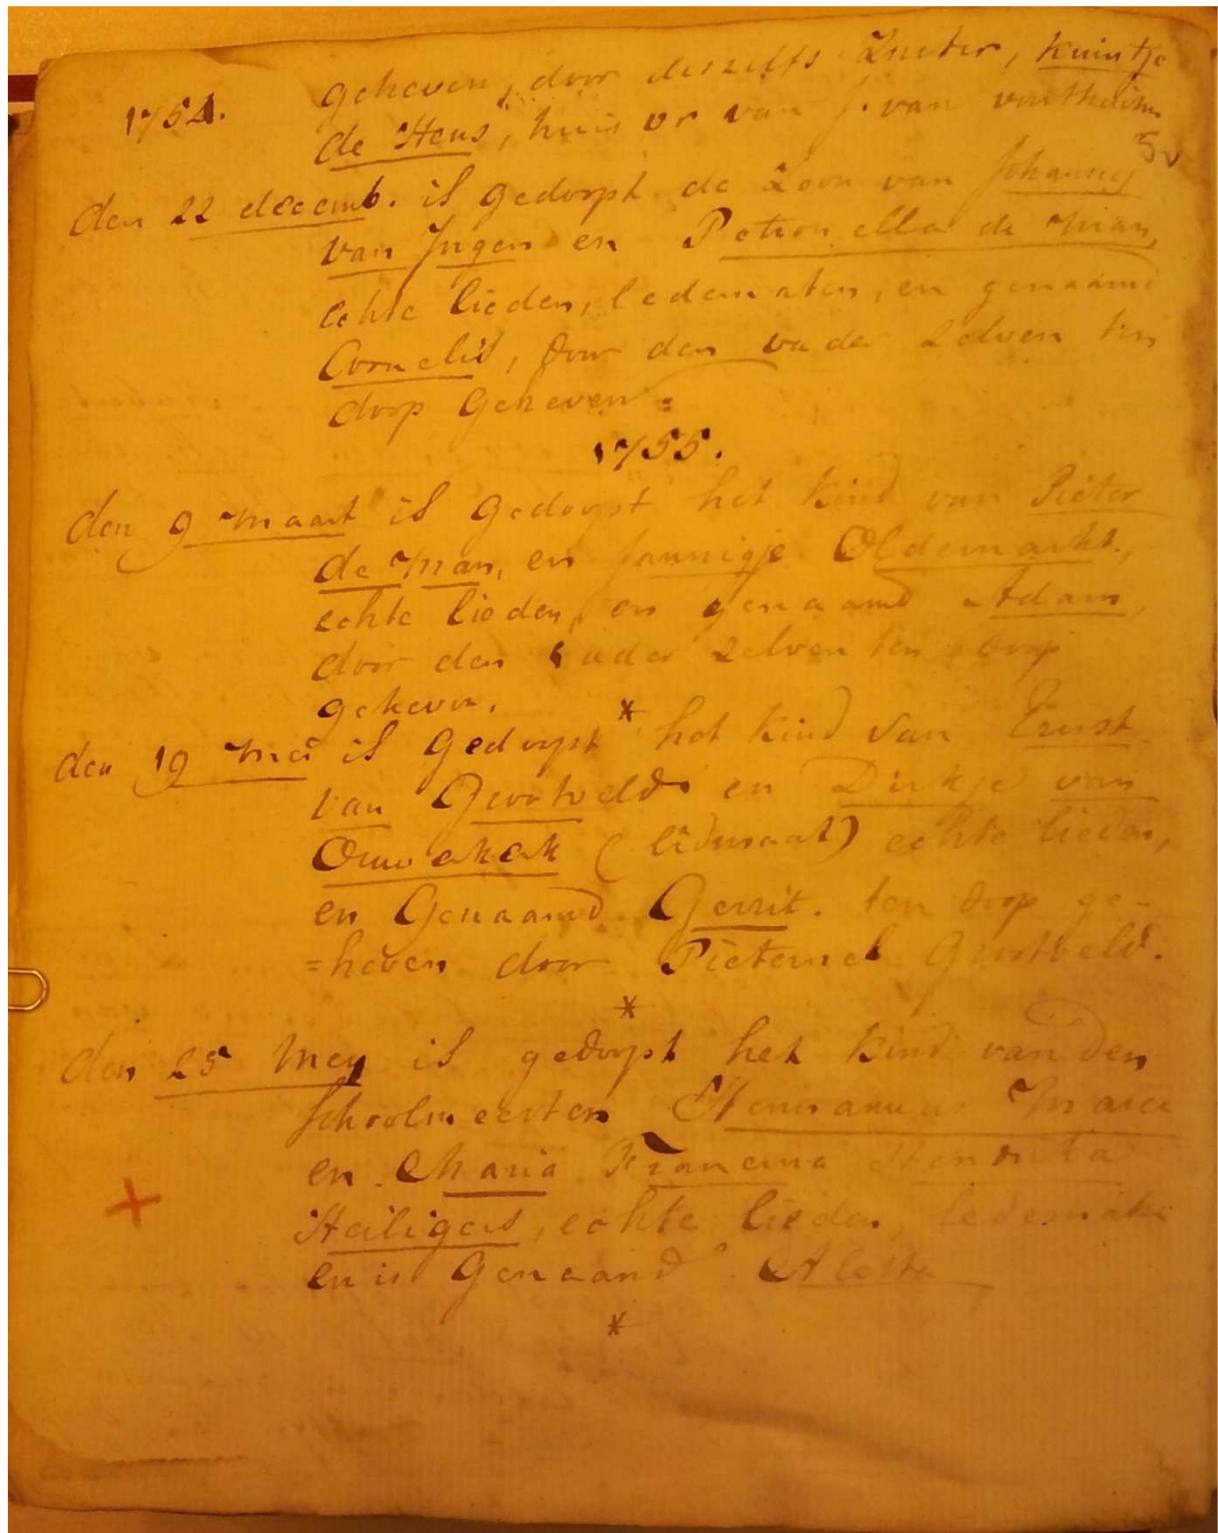 1754. geheven, door deszelfs Zuster, Kuintje
de Heus, huis vr van J. van
5v
den 22 decemb. is gedoopt de Zoon van Johannes
van Ingen en Petronella de Man,
echte lieden, ledematen, en genaamd
Cornelis, door den vader zelven ten
doop Geheven =
1755.
den 9 Maart is Gedoopt het kind van Pieter
de Man, en Jannigje Oldemarkt,
echte lieden, en genaamd Adam,
door den vader zelven ten doop
geheven. *
den 19 Mei is Gedoopt het kind van Ernst
van Grootveld en Dirkje van
(lidmaat) echte lieden,
en Genaamd Gerrit. ten doop ge-
=heven door Pieternel Grootveld.
*
den 25 Mey is gedoopt het kind van den
schoolmeester Hermanus
en Maria Francina
Heiligers, echte lieden, ledemate
en is Genaamd Aletta
*